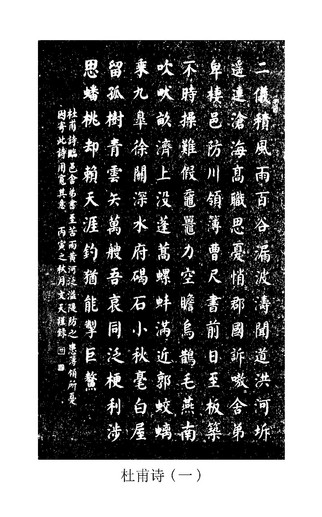 二儀積風雨百谷漏波濤聞道洪河坼
遥連滄海高職思憂悄郡國訴嗷舍弟
卑棲邑防川領簿曹尺書前日至板築
不時操難假黿鼉力空瞻烏鵲毛燕南
吹畎畝濟上没蓬蒿螺蚌滿近郭蛟螭
乘九皋徐關深水府碣石小秋毫白屋
留孤樹青雲矢萬艘吾衰同泛梗利涉
思蟠桃却賴天涯釣猶能掣巨鰲
杜甫詩臨邑舍弟書至苦雨黄河泛溢隄防之患簿領所憂
因寄此詩用寬其意 丙寅之秋月文天
杜甫诗(一)